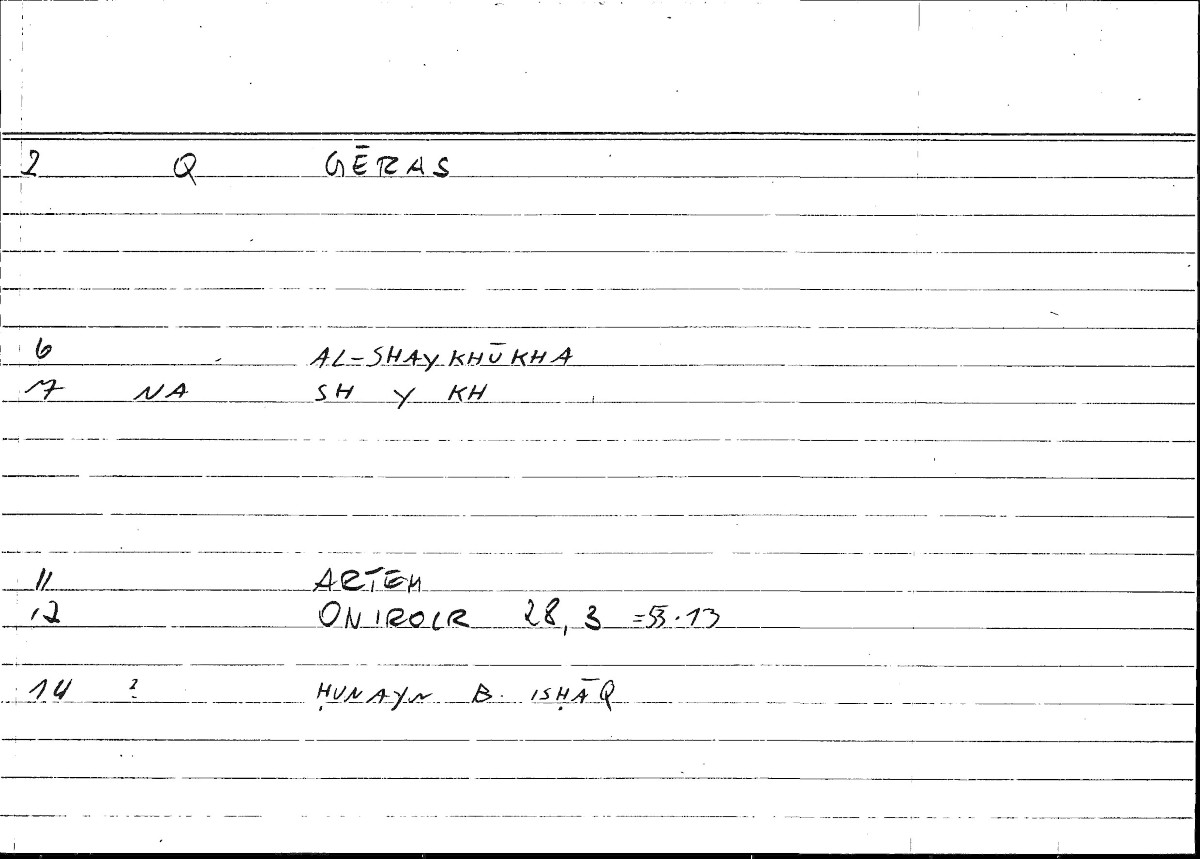 2 Q GĒRAS
6 AL-SHAYKHŪKHA
7 NA SH Y KH
11 ARTEM
12 ONIROCR 28, 3 =53.13
14 ? ḤUNAYN B. ISḤĀQ